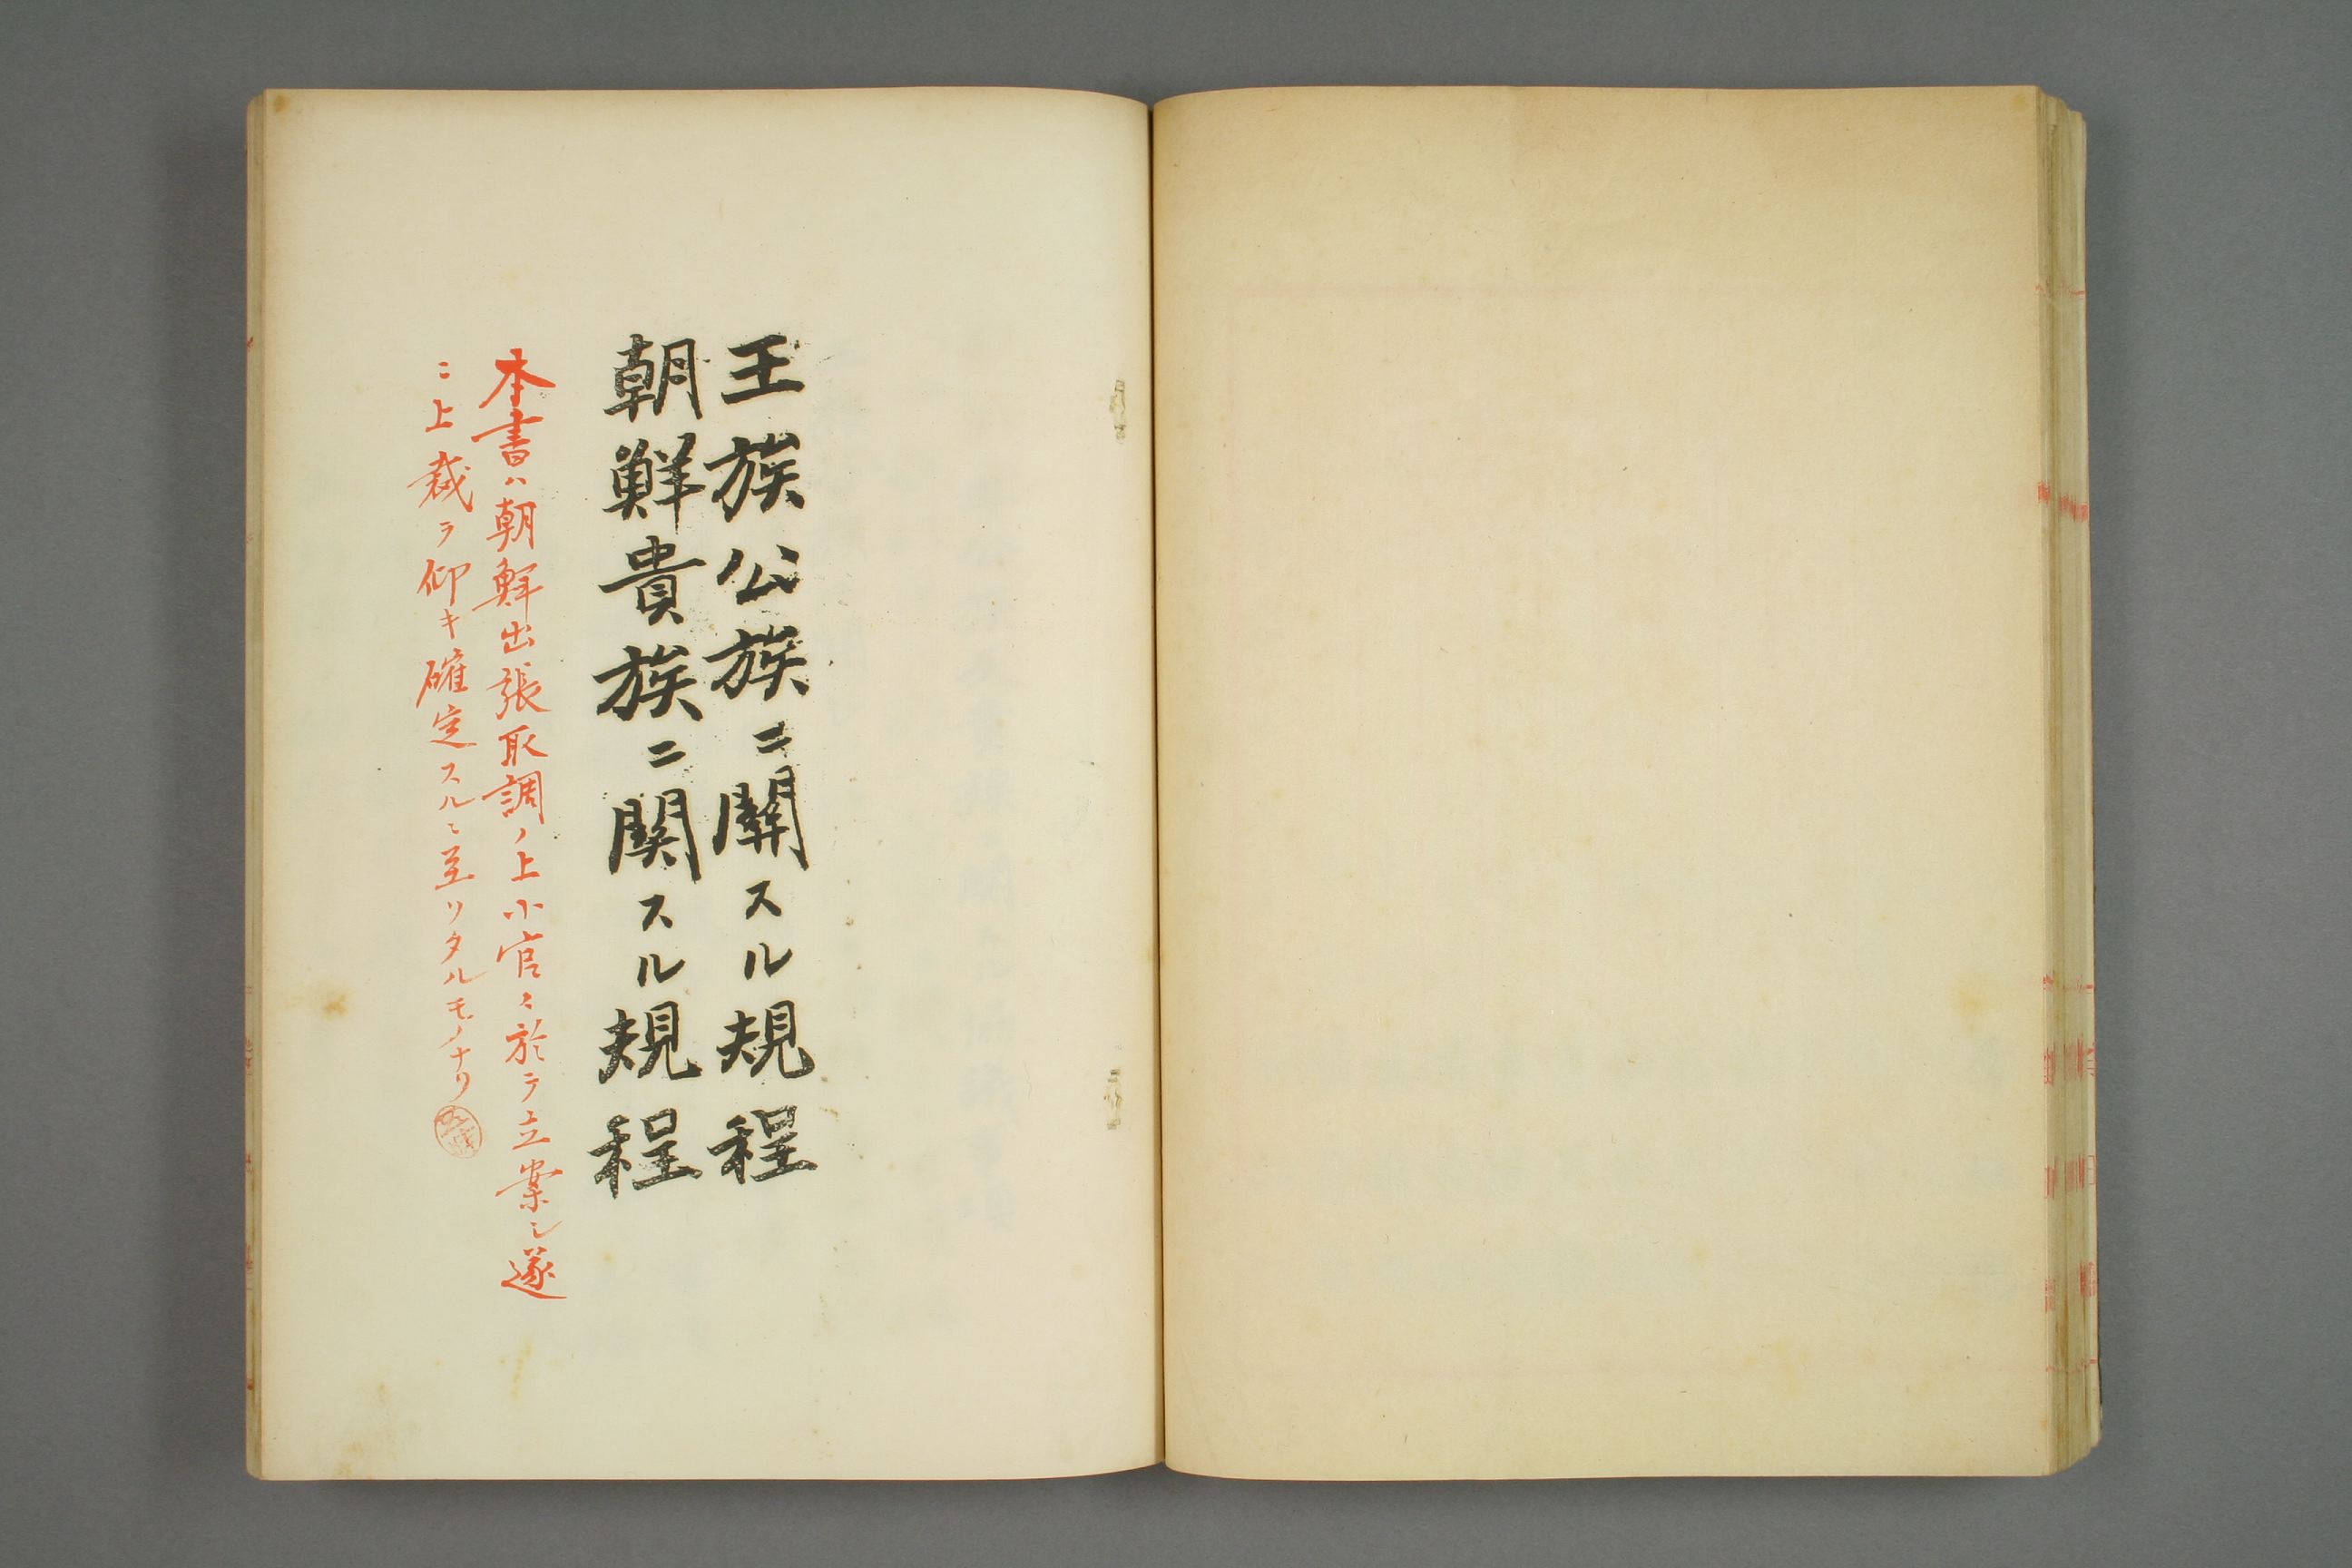 王族公族ニ関スル規程
朝鮮貴族ニ関スル規程
本書ハ朝鮮出張取調ノ上小官ニ於テ立案シ遂
ニ上裁ヲ仰キ確定スルニ至リタルモノナリ